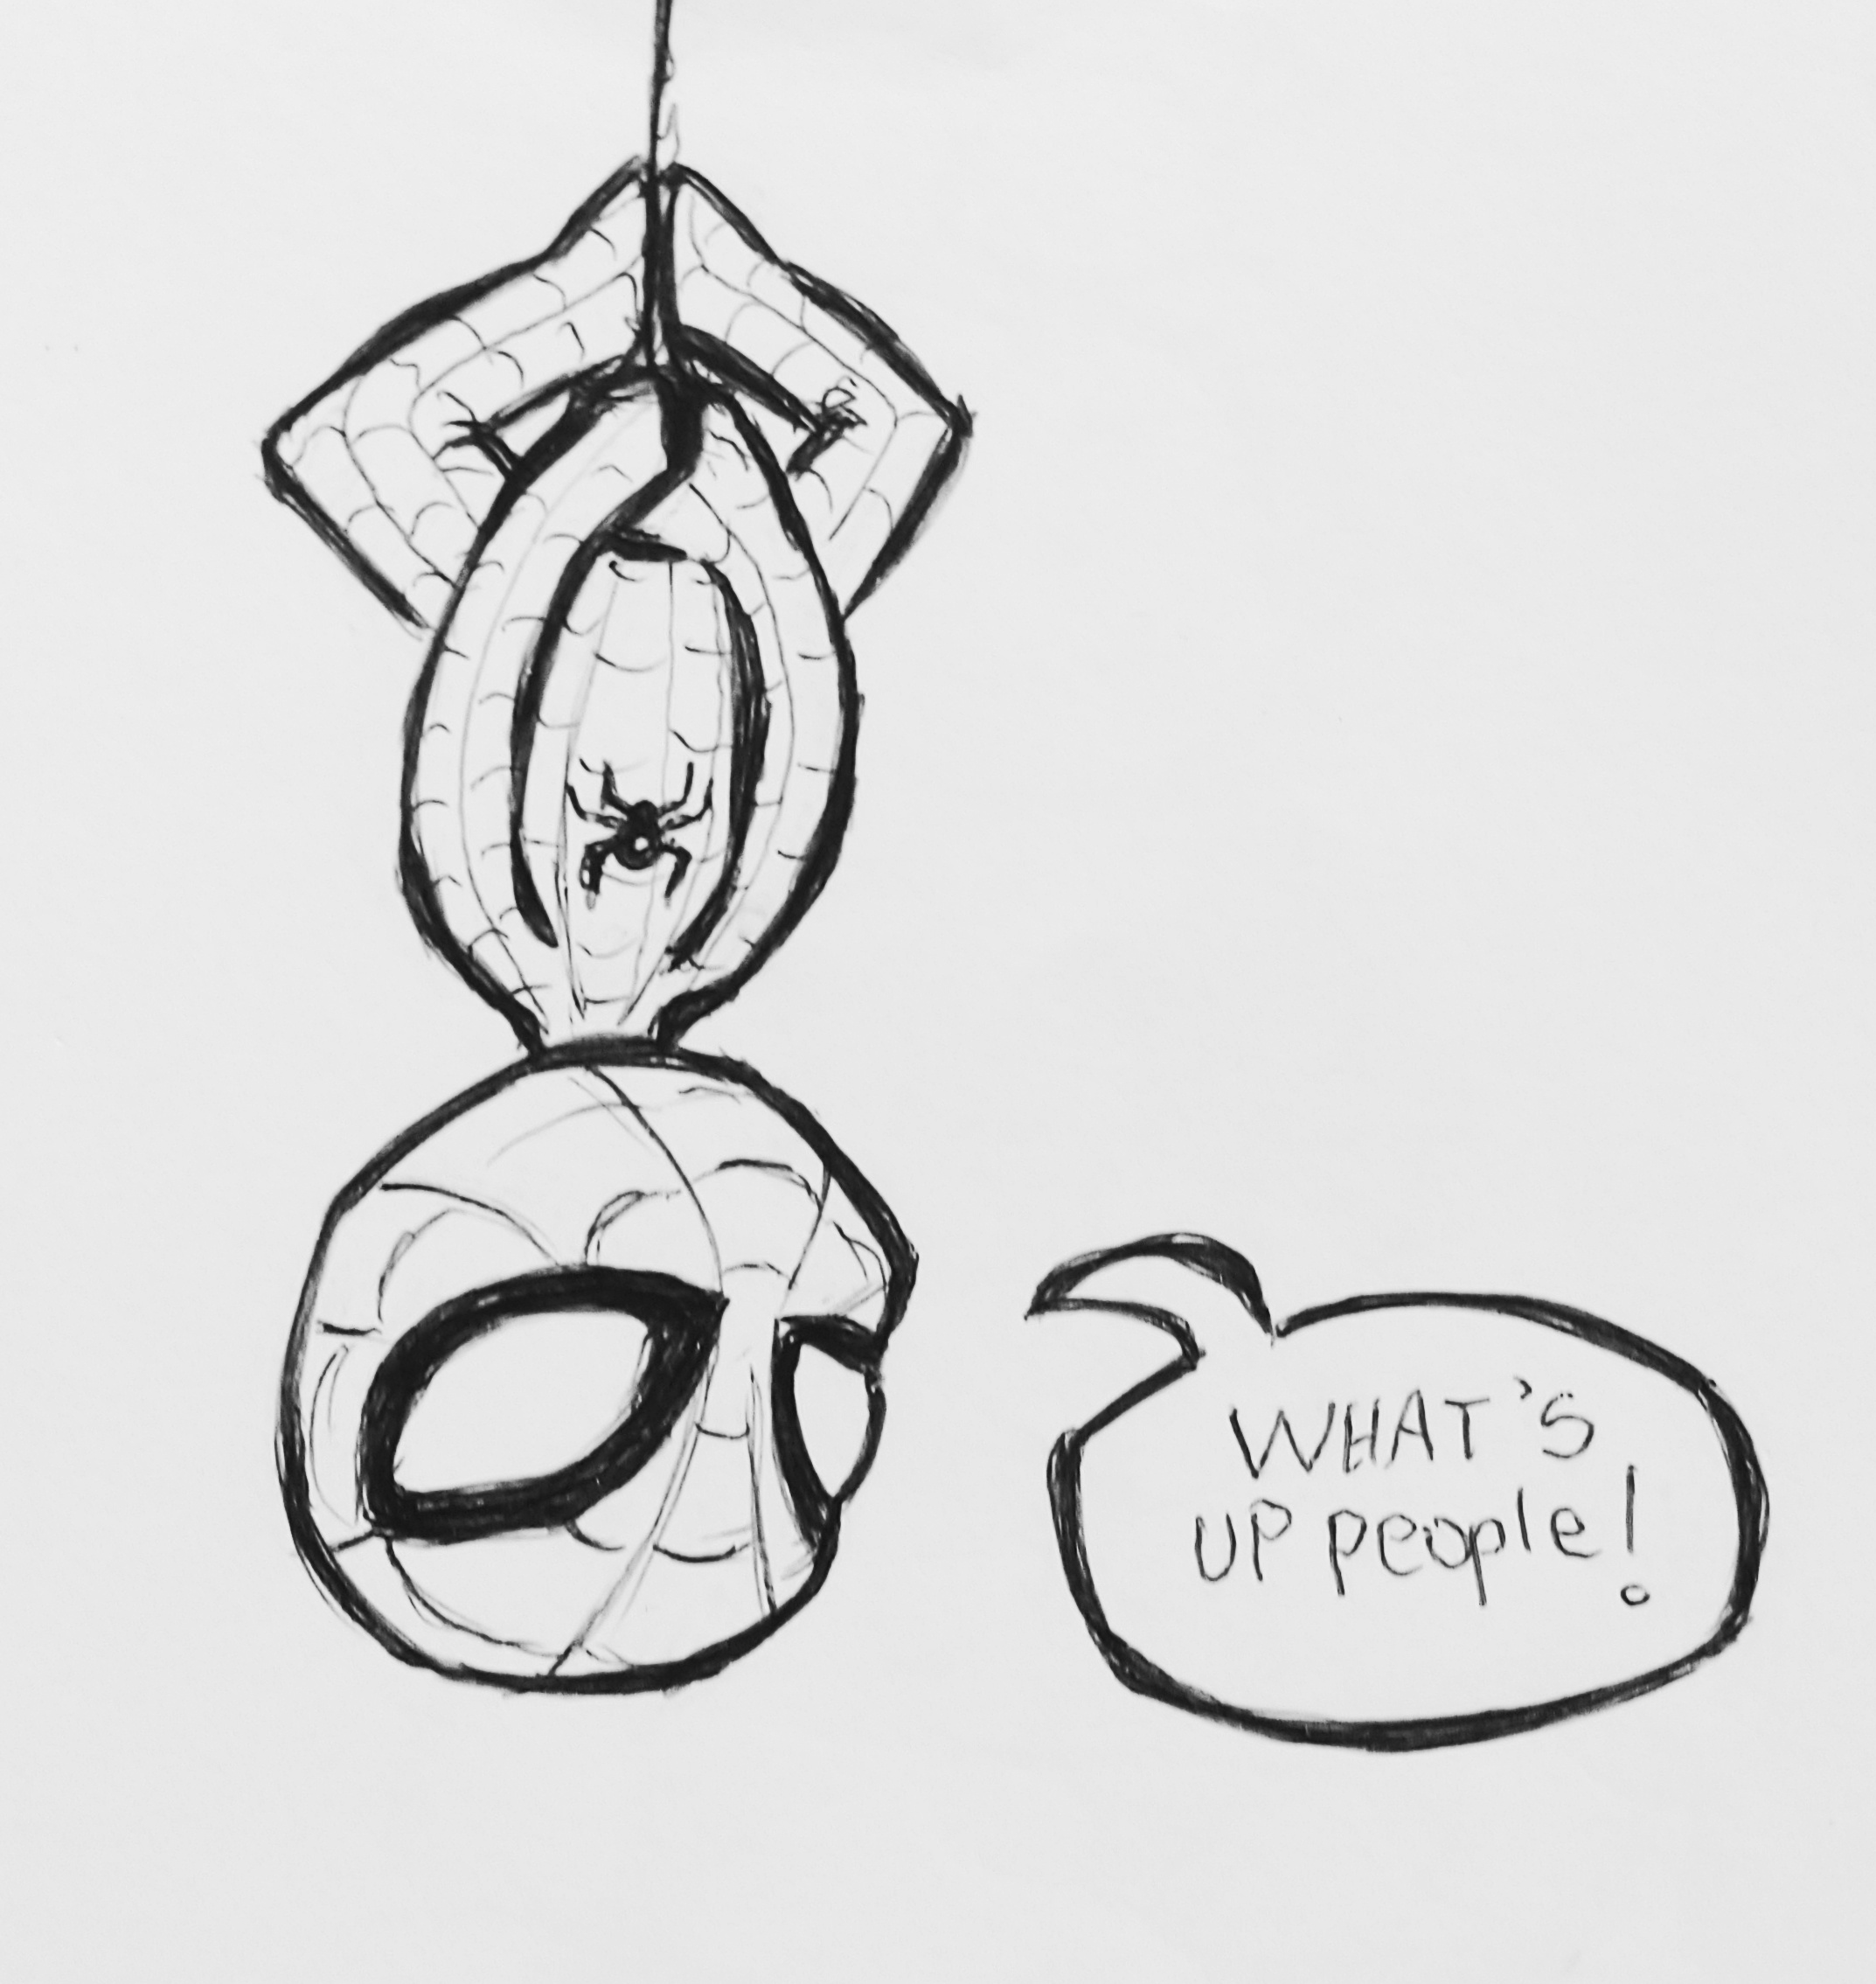 WHAT'S
UP people!